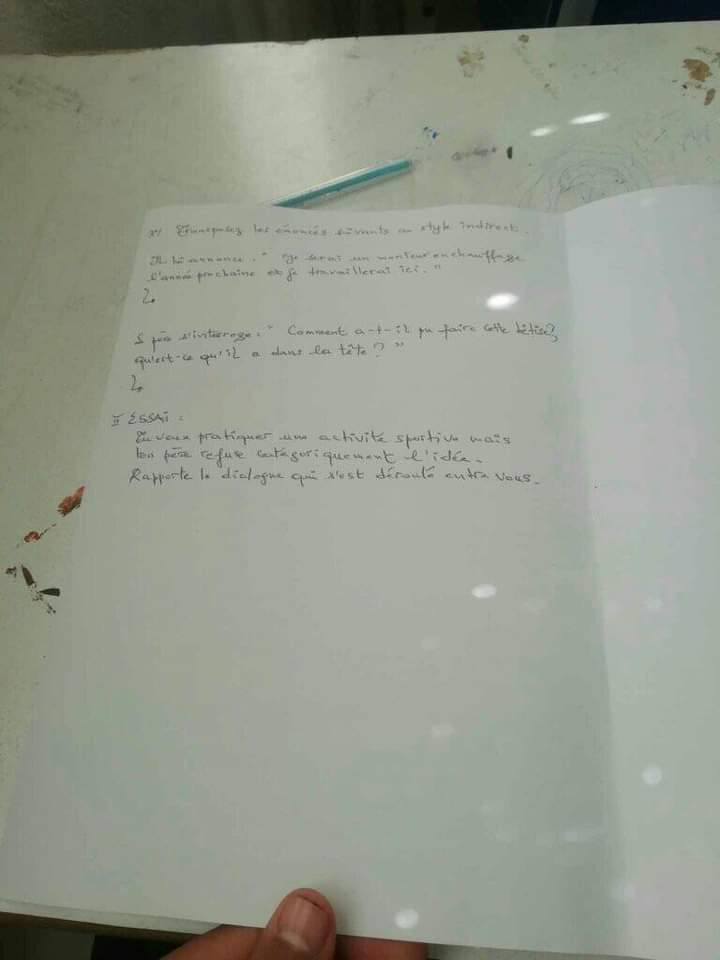 3°/ Transposez les énoncés suivants au style indirect.
Il lui annonce : " Je serai un monteur en chauffage
l'année prochaine et je travaillerai ici. "
L père s'interroge : " Comment a-t-il pu faire cette bêtise,
qu'est-ce qu'il a dans la tête ? "
II ESSAI :
Tu veux pratiquer une activité sportive mais
ton père refuse catégoriquement l'idée.
Rapporte le dialogue qui s'est déroulé entre vous.